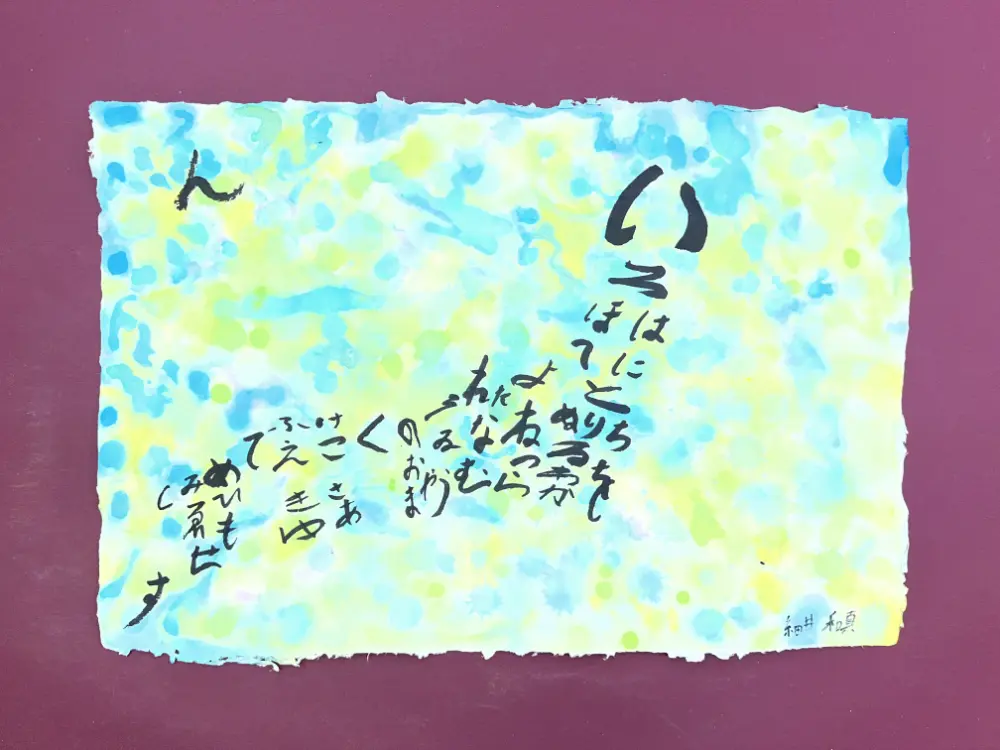 いろ
はに
ほへと
ちりぬるを
わか
よ
たれそ
つねならむ
うゐの
おくやま
けふこえて
あさきゆ
めみし
ゑひもせ
す
ん
細井 和真